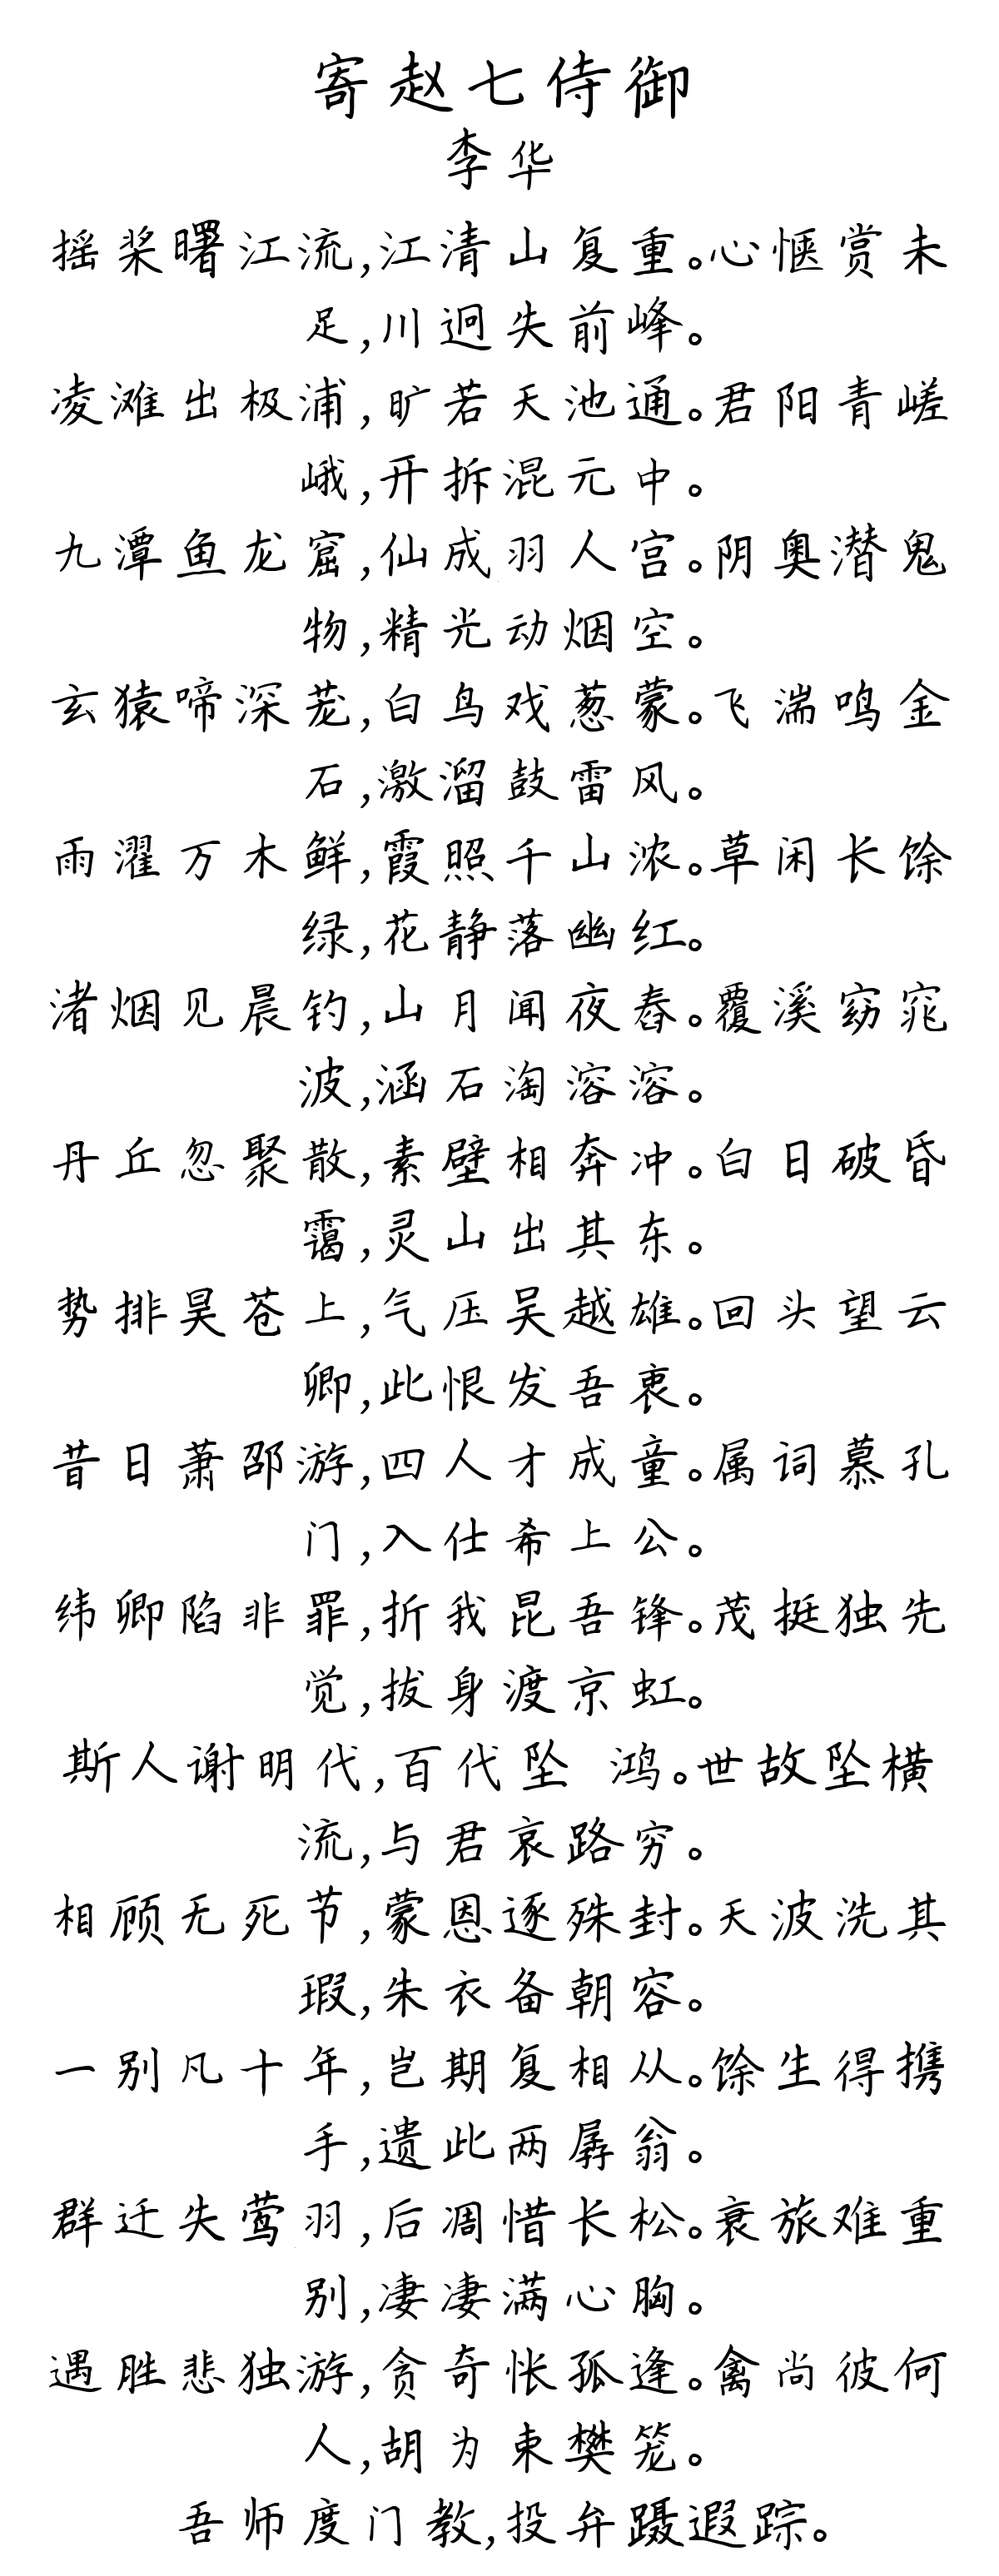 寄赵七侍御
李华
摇桨曙江流,江清山复重。心惬赏未
足,川迥失前峰。
凌滩出极浦,旷若天池通。君阳青嵯
峨,开拆混元中。
九潭鱼龙窟,仙成羽人宫。阴奥潜鬼
物,精光动烟空。
玄猿啼深茏,白鸟戏葱蒙。飞湍鸣金
石,激溜鼓雷风。
雨濯万木鲜,霞照千山浓。草闲长馀
绿,花静落幽红。
渚烟见晨钓,山月闻夜舂。覆溪窈窕
波,涵石淘溶溶。
丹丘忽聚散,素壁相奔冲。白日破昏
霭,灵山出其东。
势排昊苍上,气压吴越雄。回头望云
卿,此恨发吾衷。
昔日萧邵游,四人才成童。属词慕孔
门,入仕希上公。
纬卿陷非罪,折我昆吾锋。茂挺独先
觉,拔身渡京虹。
斯人谢明代,百代坠 鸿。世故坠横
流,与君哀路穷。
相顾无死节,蒙恩逐殊封。天波洗其
瑕,朱衣备朝容。
一别凡十年,岂期复相从。馀生得携
手,遗此两孱翁。
群迁失莺羽,后凋惜长松。衰旅难重
别,凄凄满心胸。
遇胜悲独游,贪奇怅孤逢。禽尚彼何
人,胡为束樊笼。
吾师度门教,投弁蹑遐踪。